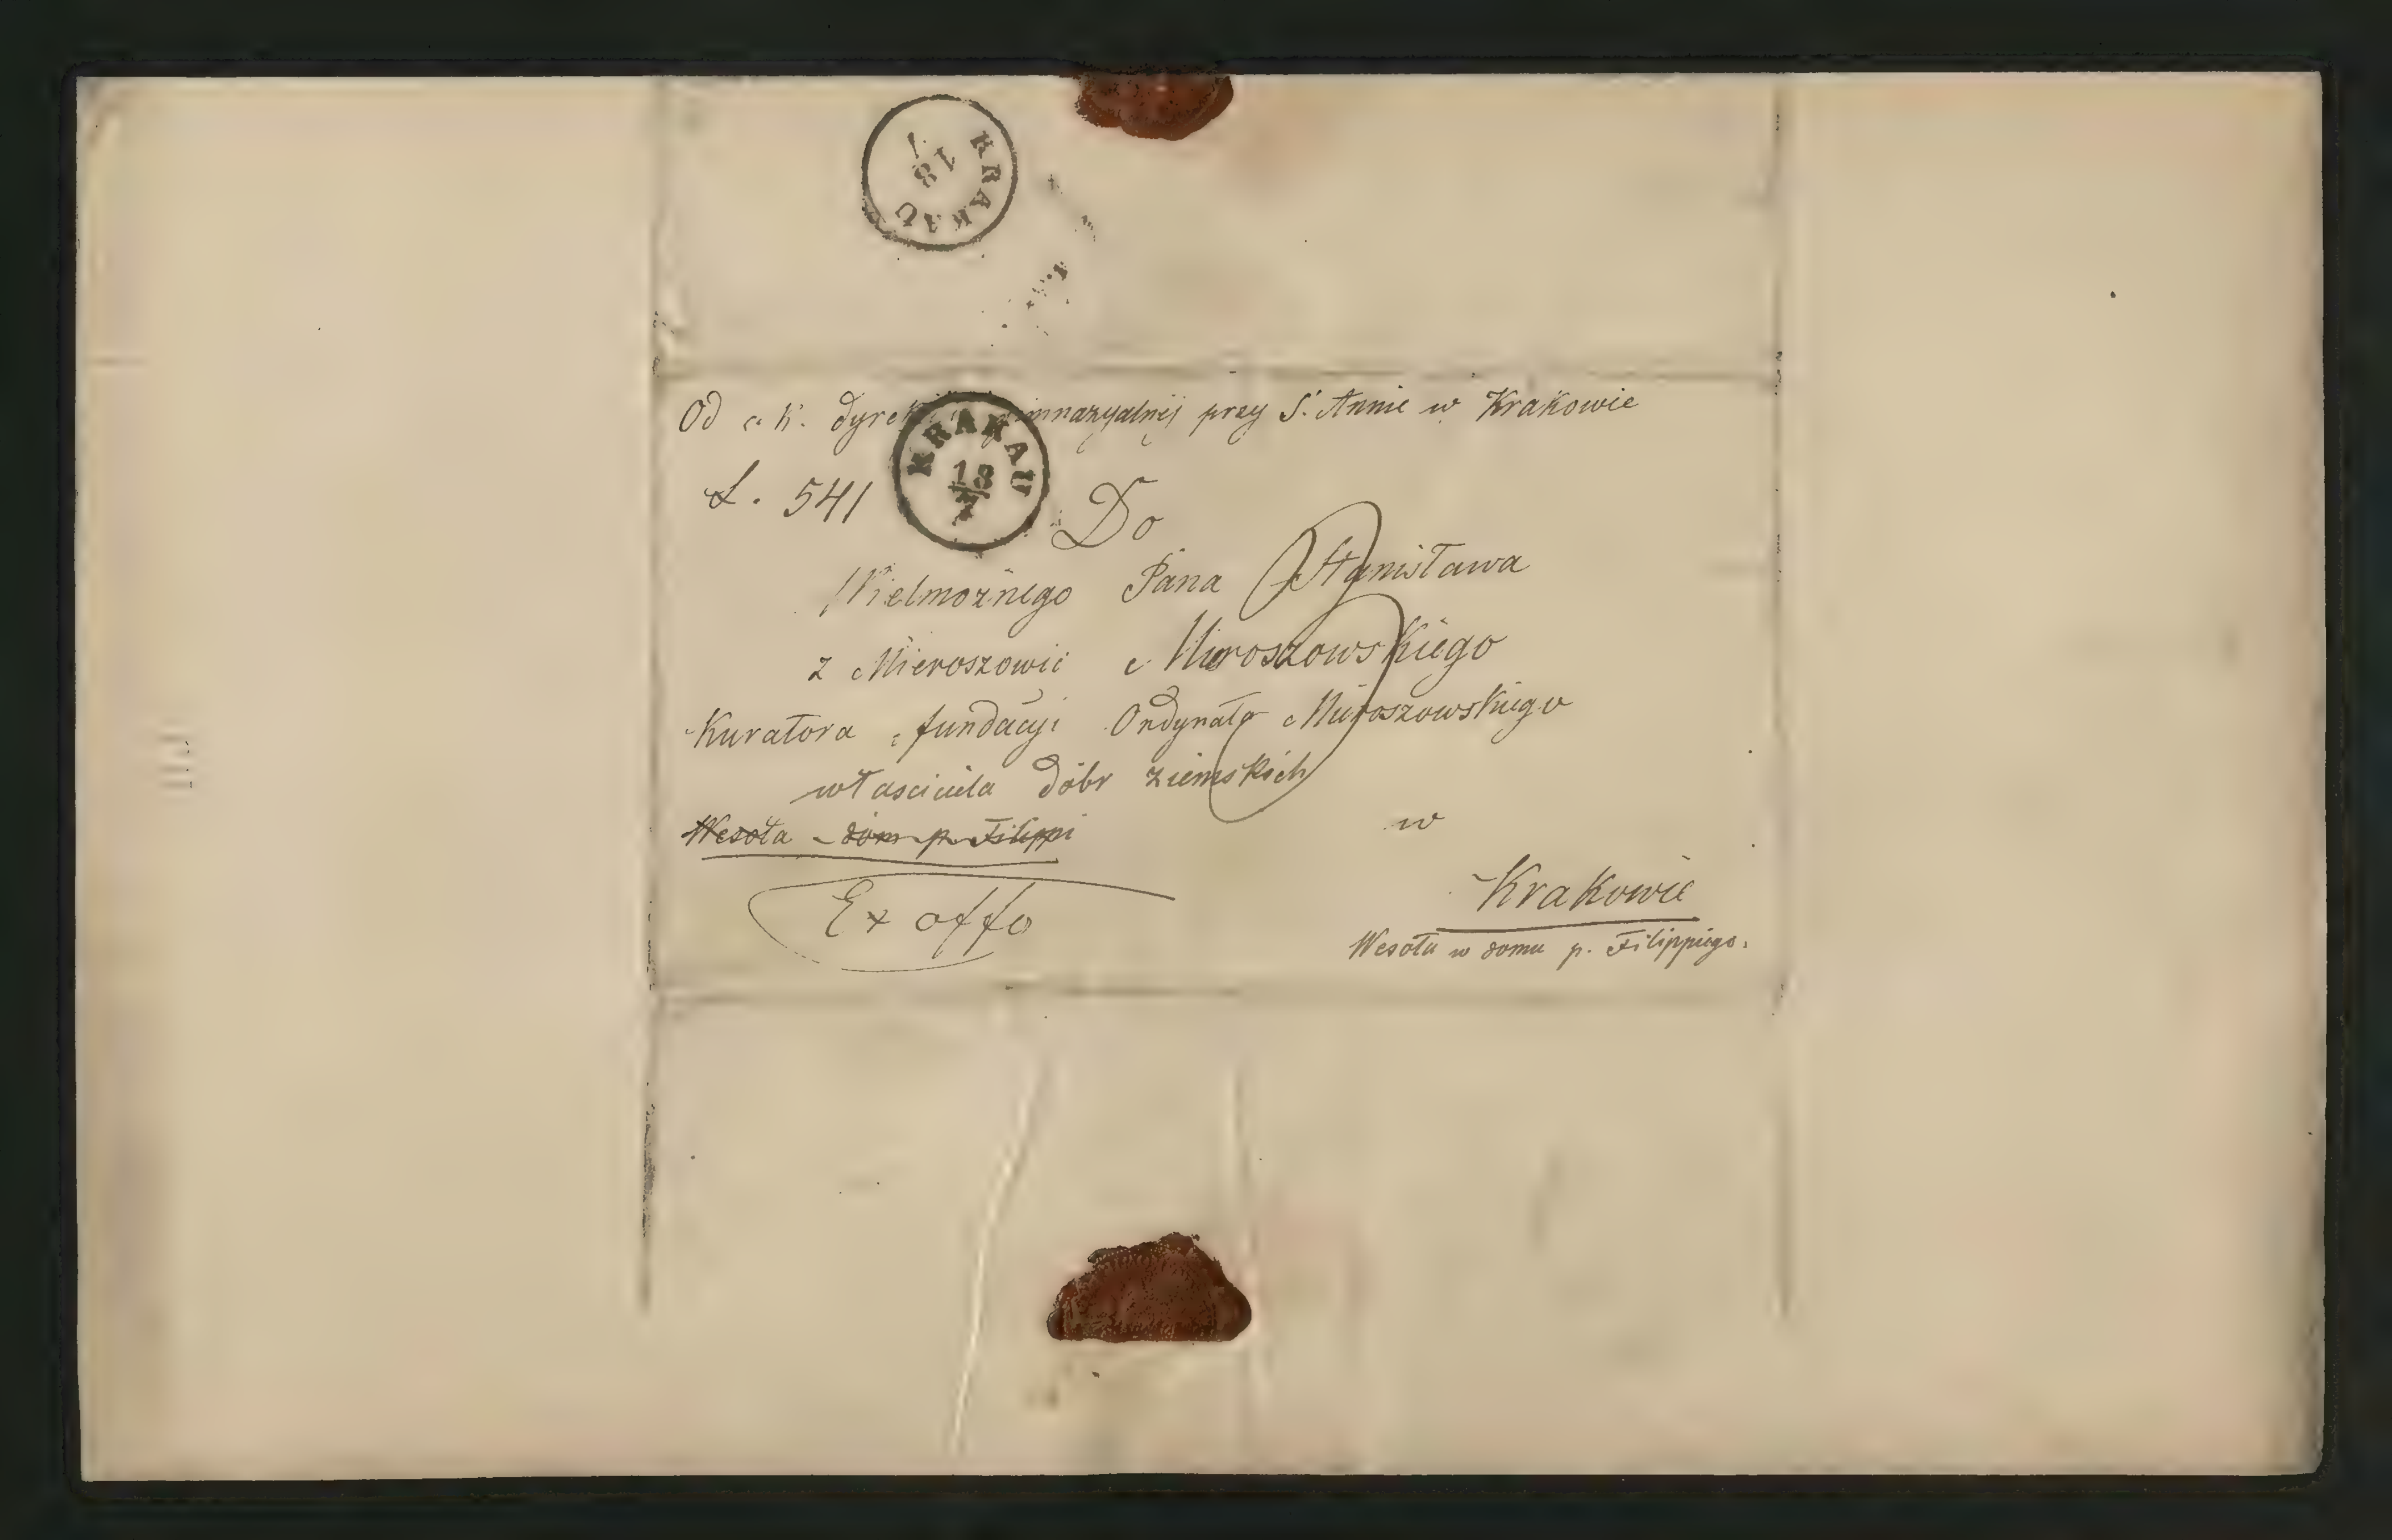 KRAKAU
18
7
Od c. k. dyrekcyi gimnazyalnéj przy S. Annie w Krakowie
KRAKAU
18
7
L. 541
Do
Wielmożnego Pana Stanisława
z Mieroszowic Mieroszowskiego
Kuratora fundacyi Ordynata Mieroszowskiego
właściciela dóbr ziemskich
Wesoła - dom p. Filippi
w
Ex offo
Krakowie
Wesoła w domu p. Filippiego.